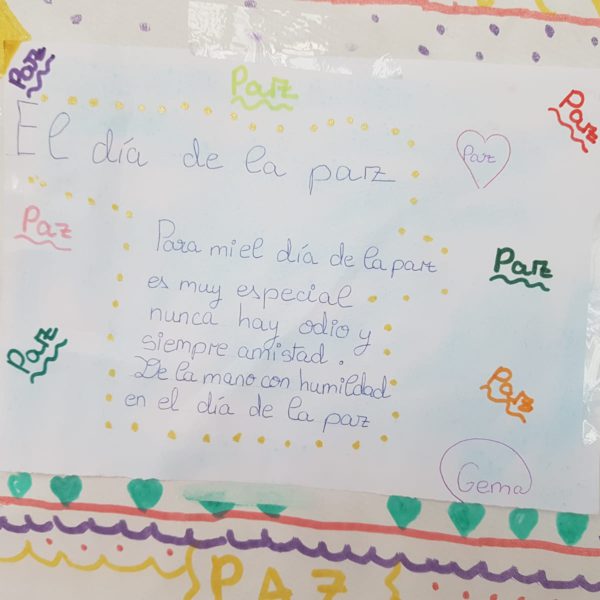 Paz
Paz
Paz
El día de la paz
Paz
Paz
Para mi el día de la paz
es muy especial
nunca hay odio y
siempre amistad.
De la mano con humildad
en el día de la paz
Paz
Paz
Paz
Gema
PAZ